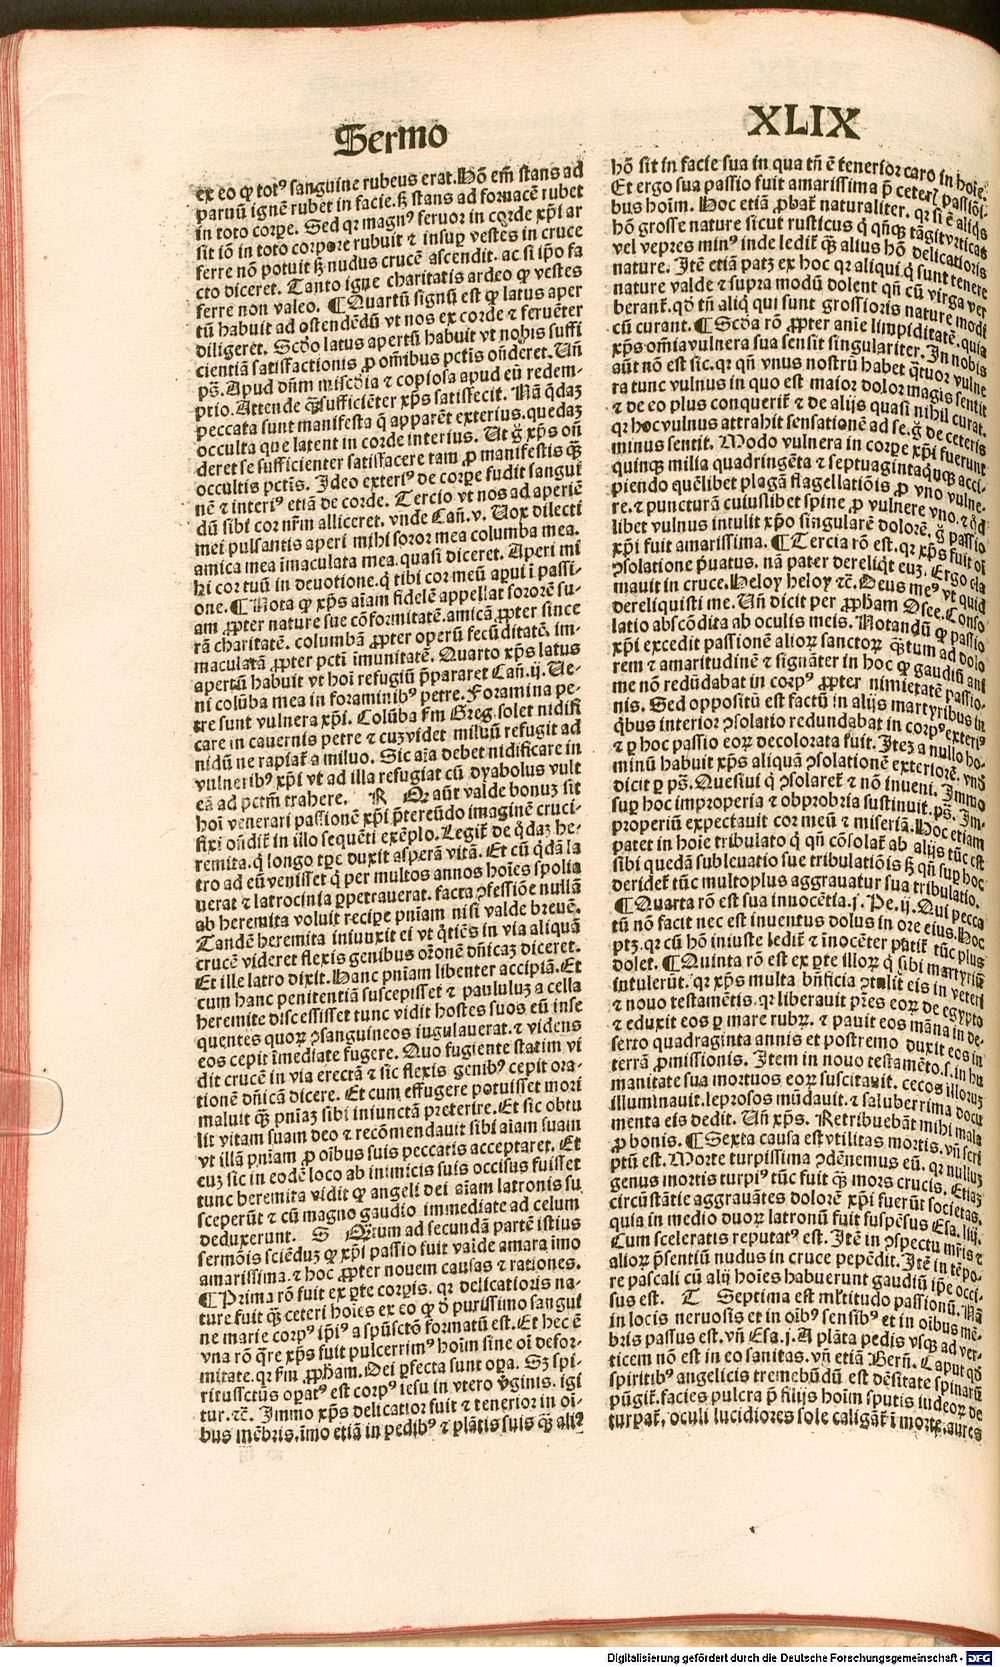 Sermo
XLIX
ex eo ꝙ totꝰ sanguine rubeus erat. Hō em̄ stans ad
paruū ignē rubet in facie. sꝫ stans ad fornacē rubet
in toto corꝑe. Sed qꝛ magnꝰ feruor in corde xp̄i ar
sit iō in toto corpore rubuit ⁊ insuꝑ vestes in cruce
ferre nō potuit sꝫ nudus crucē ascendit. ac si ip̄o fa
cto diceret. Tanto igne charitatis ardeo ꝙ vestes
ferre non valeo. ¶ Quartū signū est ꝙ latus aper
tū habuit ad ostendēdū vt nos ex corde ⁊ feruēter
diligeret. Scd̓o latus apertū habuit vt nobis suffi
cientiā satisfactionis ꝓ om̄ibus pctis on̄deret. Vn̄
ps̄. Apud dn̄m miscd̓ia ⁊ copiosa apud eū redem-
ptio. Attende ꝙ̄ sufficiēter xp̄s satisfecit. Nā q̄daꝫ
peccata sunt manifesta q̄ apparēt exterius. quedaꝫ
occulta que latent in corde interius. Ut g̊ xp̄s on̄
deret se sufficienter satisfacere tam ꝓ manifestis ꝙ̄
occultis pctīs. Ideo exteriꝰ de corꝑe fudit sangui
nē ⁊ interiꝰ etiā de corde. Tercio vt nos ad aperiē
dū sibi cor nr̄m alliceret. vnde Can̄. v. Vox dilecti
mei pulsantis aperi mihi soror mea columba mea.
amica mea īmaculata mea. quasi diceret. Aperi mi
hi cor tuū in deuotione. q̄ tibi cor meū aꝑui ī passi-
one. ¶ Nota ꝙ xp̄s aīam fidelē appellat sororē su-
am ꝓpter nature sue cōformitatē. amicā ꝓpter since
rā charitatē. columbā ꝓpter operū fecūditatē. im-
maculatā ꝓpter pcti īmunitatē. Quarto xp̄s latus
apertū habuit vt hoī refugiū p̄pararet Can̄. ij. Ve-
ni colūba mea in foraminibꝰ petre. Foramina pe-
tre sunt vulnera xp̄i. Colūba fm̄ Greg. solet nidifi
care in cauernis petre ⁊ cuꝫ videt miluū refugit ad
nidū ne rapiat̄ a miluo. Sic aīa debet nidificare in
vulneribꝰ xp̄i vt ad illa refugiat cū dyabolus vult
eā ad pctm̄ trahere. R Qꝛ aūt valde bonuꝫ sit
hoī venerari passionē xp̄i p̄tereūdo imaginē cruci-
fixi on̄dit̄ in illo sequēti exēplo. Legit̄ de q̊daꝫ he-
remita. q̄ longo tp̄e duxit asperā vitā. Et cū q̄dā la
tro ad eū venisset q̄ per multos annos hoīes spolia
uerat ⁊ latrocinia ꝑpetrauerat. facta ꝯfessiōe nullā
ab heremita voluit recipe pn̄iam nisi valde breuē.
Tandē heremita iniuuxit ei vt q̊tiēs in via aliquā
crucē videret flexis genibus or̄onē dn̄icaꝫ diceret.
Et ille latro dixit. Hanc pn̄iam libenter accipiā. Et
cum hanc penitentiā suscepisset ⁊ paululuꝫ a cella
heremite discessisset tunc vidit hostes suos eū inse
quentes quoꝝ ꝯsanguineos iugulauerat. ⁊ videns
eos cepit īmediate fugere. Quo fugiente statim vi
dit crucē in via erectā ⁊ sic flexis genibꝰ cepit ora-
tionē dn̄icā dicere. Et cum effugere potuisset mori
maluit ꝙ̄ pn̄iaꝫ sibi iniunctā preterire. Et sic obtu
lit vitam suam deo ⁊ recōmendauit sibi aīam suam
vt illā pn̄iam ꝓ oībus suis peccatis acceptaret. Et
euꝫ sic in eodē loco ab inimicis suis occisus fuisset
tunc heremita vidit ꝙ angeli dei aīam latronis su
sceperūt ⁊ cū magno gaudio immediate ad celum
deduxerunt. S Qꝛtum ad secundā partē istius
sermōis sciēduꝫ ꝙ xp̄i passio fuit valde amara īmo
amarissima. ⁊ hoc ꝓpter novem causas ⁊ rationes.
¶ Prima rō fuit ex ꝑte corꝑis. qꝛ delicatioris na-
ture fuit ꝙ̄ ceteri hoīes ex eo ꝙ d̓ purissimo sangui
ne marie corpꝰ ip̄iꝰ a spūsctō formatū est. Et hec ē
vna rō q̄re xp̄s fuit pulcerrimꝰ hoīm sine oī defor-
mitate. qꝛ fm̄ ꝓpham. Dei ꝑfecta sunt oꝑa. Sꝫ spi-
ritussctus oꝑatꝰ est corpꝰ iesu in vtero v̓ginis. igi
tur. ⁊c̄. Immo xp̄s delicatior fuit ⁊ tenerior in oī-
bus mēbris. īmo etiā in pedibꝰ ⁊ plātis suis ꝙ̄ aliꝰ
hō sit in facie sua in qua tn̄ ē tenerior caro in hoīe.
Et ergo sua passio fuit amarissima p̄ ceterꝭ passiōi-
bus hoīm. Hoc etiā ꝓbat̄ naturaliter. qꝛ si ē aliqs
hō grosse nature sicut rusticus q̄ qn̄qꝫ tāgit vrticas
vel vepres minꝰ inde ledit̄ ꝙ̄ alius hō delicatioris
nature. Itē etiā patꝫ ex hoc qꝛ aliqui q̄ sunt tenere
nature valde ⁊ supra modū dolent qn̄ cū virga ver
berant̄. qd̓ tn̄ aliq̄ qui sunt grossioris nature modi
cū curant. ¶ Scd̓a rō ꝓpter aīe limpiditatē. quia
xp̄s om̄ia vulnera sua sensit singulariter. In nobis
aūt nō est sic. qꝛ qn̄ vnus nostrū habet q̊tuor vulne
ra tunc vulnus in quo est maior dolor magis sentit
⁊ de eo plus conquerit̄ ⁊ de alijs quasi nihil curat.
qꝛ hoc vulnus attrahit sensationē ad se. g̊ de ceteris
minus sentit. Modo vulnera in corꝑe xp̄i fuerunt
quinqꝫ milia quadringēta ⁊ septuagintaquīqꝫ acci-
piendo quēlibet plagā flagellatiōis ꝓ vno vulne-
re. ⁊ puncturā cuiuslibet spine ꝓ vulnere vno. ⁊ qd̓
libet vulnus intulit xp̄o singularē dolorē. g̊ passio
xp̄i fuit amarissima. ¶ Tercia rō est. qꝛ xp̄s fuit oī
ꝯsolatione pͥuatus. nā pater dereliq̄t euꝫ. Ergo cla
mauit in cruce. Heloy heloy ⁊c̄. Deus meꝰ vt quid
dereliquisti me. Vn̄ dicit per ꝓpham Osee. Conso
latio abscōdita ab oculis meis. Notandū ꝙ passio
xp̄i excedit passionē alioꝝ sanctoꝝ ꝙ̄tum ad dolo
rem ⁊ amaritudinē ⁊ signāter in hoc ꝙ gaudiū ani
me nō redūdabat in corpꝰ ꝓpter nimietatē passio-
nis. Sed oppositū est factū in alijs martyribus in
q̄bus interior ꝯsolatio redundabat in corpꝰ exteriꝰ
⁊ ꝑ hoc passio eoꝝ decolorata fuit. Iteꝫ a nullo ho-
minū habuit xp̄s aliquā ꝯsolationē exteriorē. vnd̓
dicit ꝑ ps̄. Quesiui q̄ ꝯsolaret̄ ⁊ nō inueni. Immo
suꝑ hoc improperia ⁊ obprobria sustinuit. ps̄. Im-
properiū expectauit cor meū ⁊ miseriā. Hoc etiam
patet in hoīe tribulato q̄ qn̄ cōsolat̄ ab alijs tūc est
sibi quedā subleuatio sue tribulatiōis sꝫ qn̄ suꝑ hoc
deridet̄ tūc multoplus aggrauatur sua tribulatio.
¶ Quarta rō est sua innocētia. j. Pe. ij. Qui pecca
tū nō facit nec est inuentus dolus in ore eius. Hoc
ptꝫ. qꝛ cū hō iniuste ledit̄ ⁊ īnocēter patit̄ tūc plus
dolet. ¶ Quinta rō est ex ꝑte illoꝝ q̄ sibi martyriū
intulerūt. qꝛ xp̄s multa bn̄ficia ꝯtulit eis in veteri
⁊ nouo testamētis. qꝛ liberauit pr̄es eoꝝ de egypto
⁊ eduxit eos ꝑ mare rubꝝ. ⁊ pauit eos māna in de-
serto quadraginta annis et postremo duxit eos in
terrā ꝓmissionis. Item in nouo testamēto. s. in hu
manitate sua mortuos eoꝝ suscitauit. cecos illoruꝫ
illuminauit. leprosos mūdauit. ⁊ saluberrima docu
menta eis dedit. Vn̄ xp̄s. Retribuebāt mihi mala
ꝓ bonis. ¶ Sexta causa est vtilitas mortis. vn̄ scri
ptū est. Morte turpissima ꝯdēnemus eū. qꝛ nulluꝫ
genus mortis turpiꝰ tūc fuit ꝙ̄ mors crucis. Etiaꝫ
circūstātie aggrauātes dolorē xp̄i fuerūt societas.
quia in medio duoꝝ latronū fuit suspēsus Esa. liij.
Cum sceleratis reputatꝰ est. Itē in ꝯspectu mr̄is ⁊
alioꝝ p̄sentiū nudus in cruce pepēdit. Itē in tēpo-
re pascali cū alij hoīes habuerunt gaudiū ip̄e occi-
sus est. T Septima est mltitudo passionū. Nā
in locis neruosis et in oībꝰ sensibꝰ et in oībus mē-
bris passus est. vn̄ Esa. j. A plāta pedis vsqꝫ ad ver-
ticem nō est in eo sanitas. vn̄ etiā Bern̄. Caput qd̓
spiritibꝰ angelicis tremebūdū est dēsitate spinarū
pūgit̄. facies pulcra p̄ filijs hoīm sputis iudeoꝝ de
turpat̄. oculi lucidiores sole caligāt̄ ī morte. aures
Digitalisierung gefördert durch die Deutsche Forschungsgemeinschaft - DFG